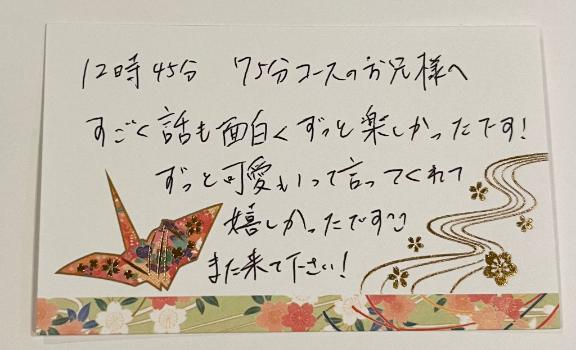 12時45分 75分コースのお兄様へ
すごく話も面白くずっと楽しかったです!
ずっと可愛いって言ってくれて
嬉しかったです
また来て下さい!